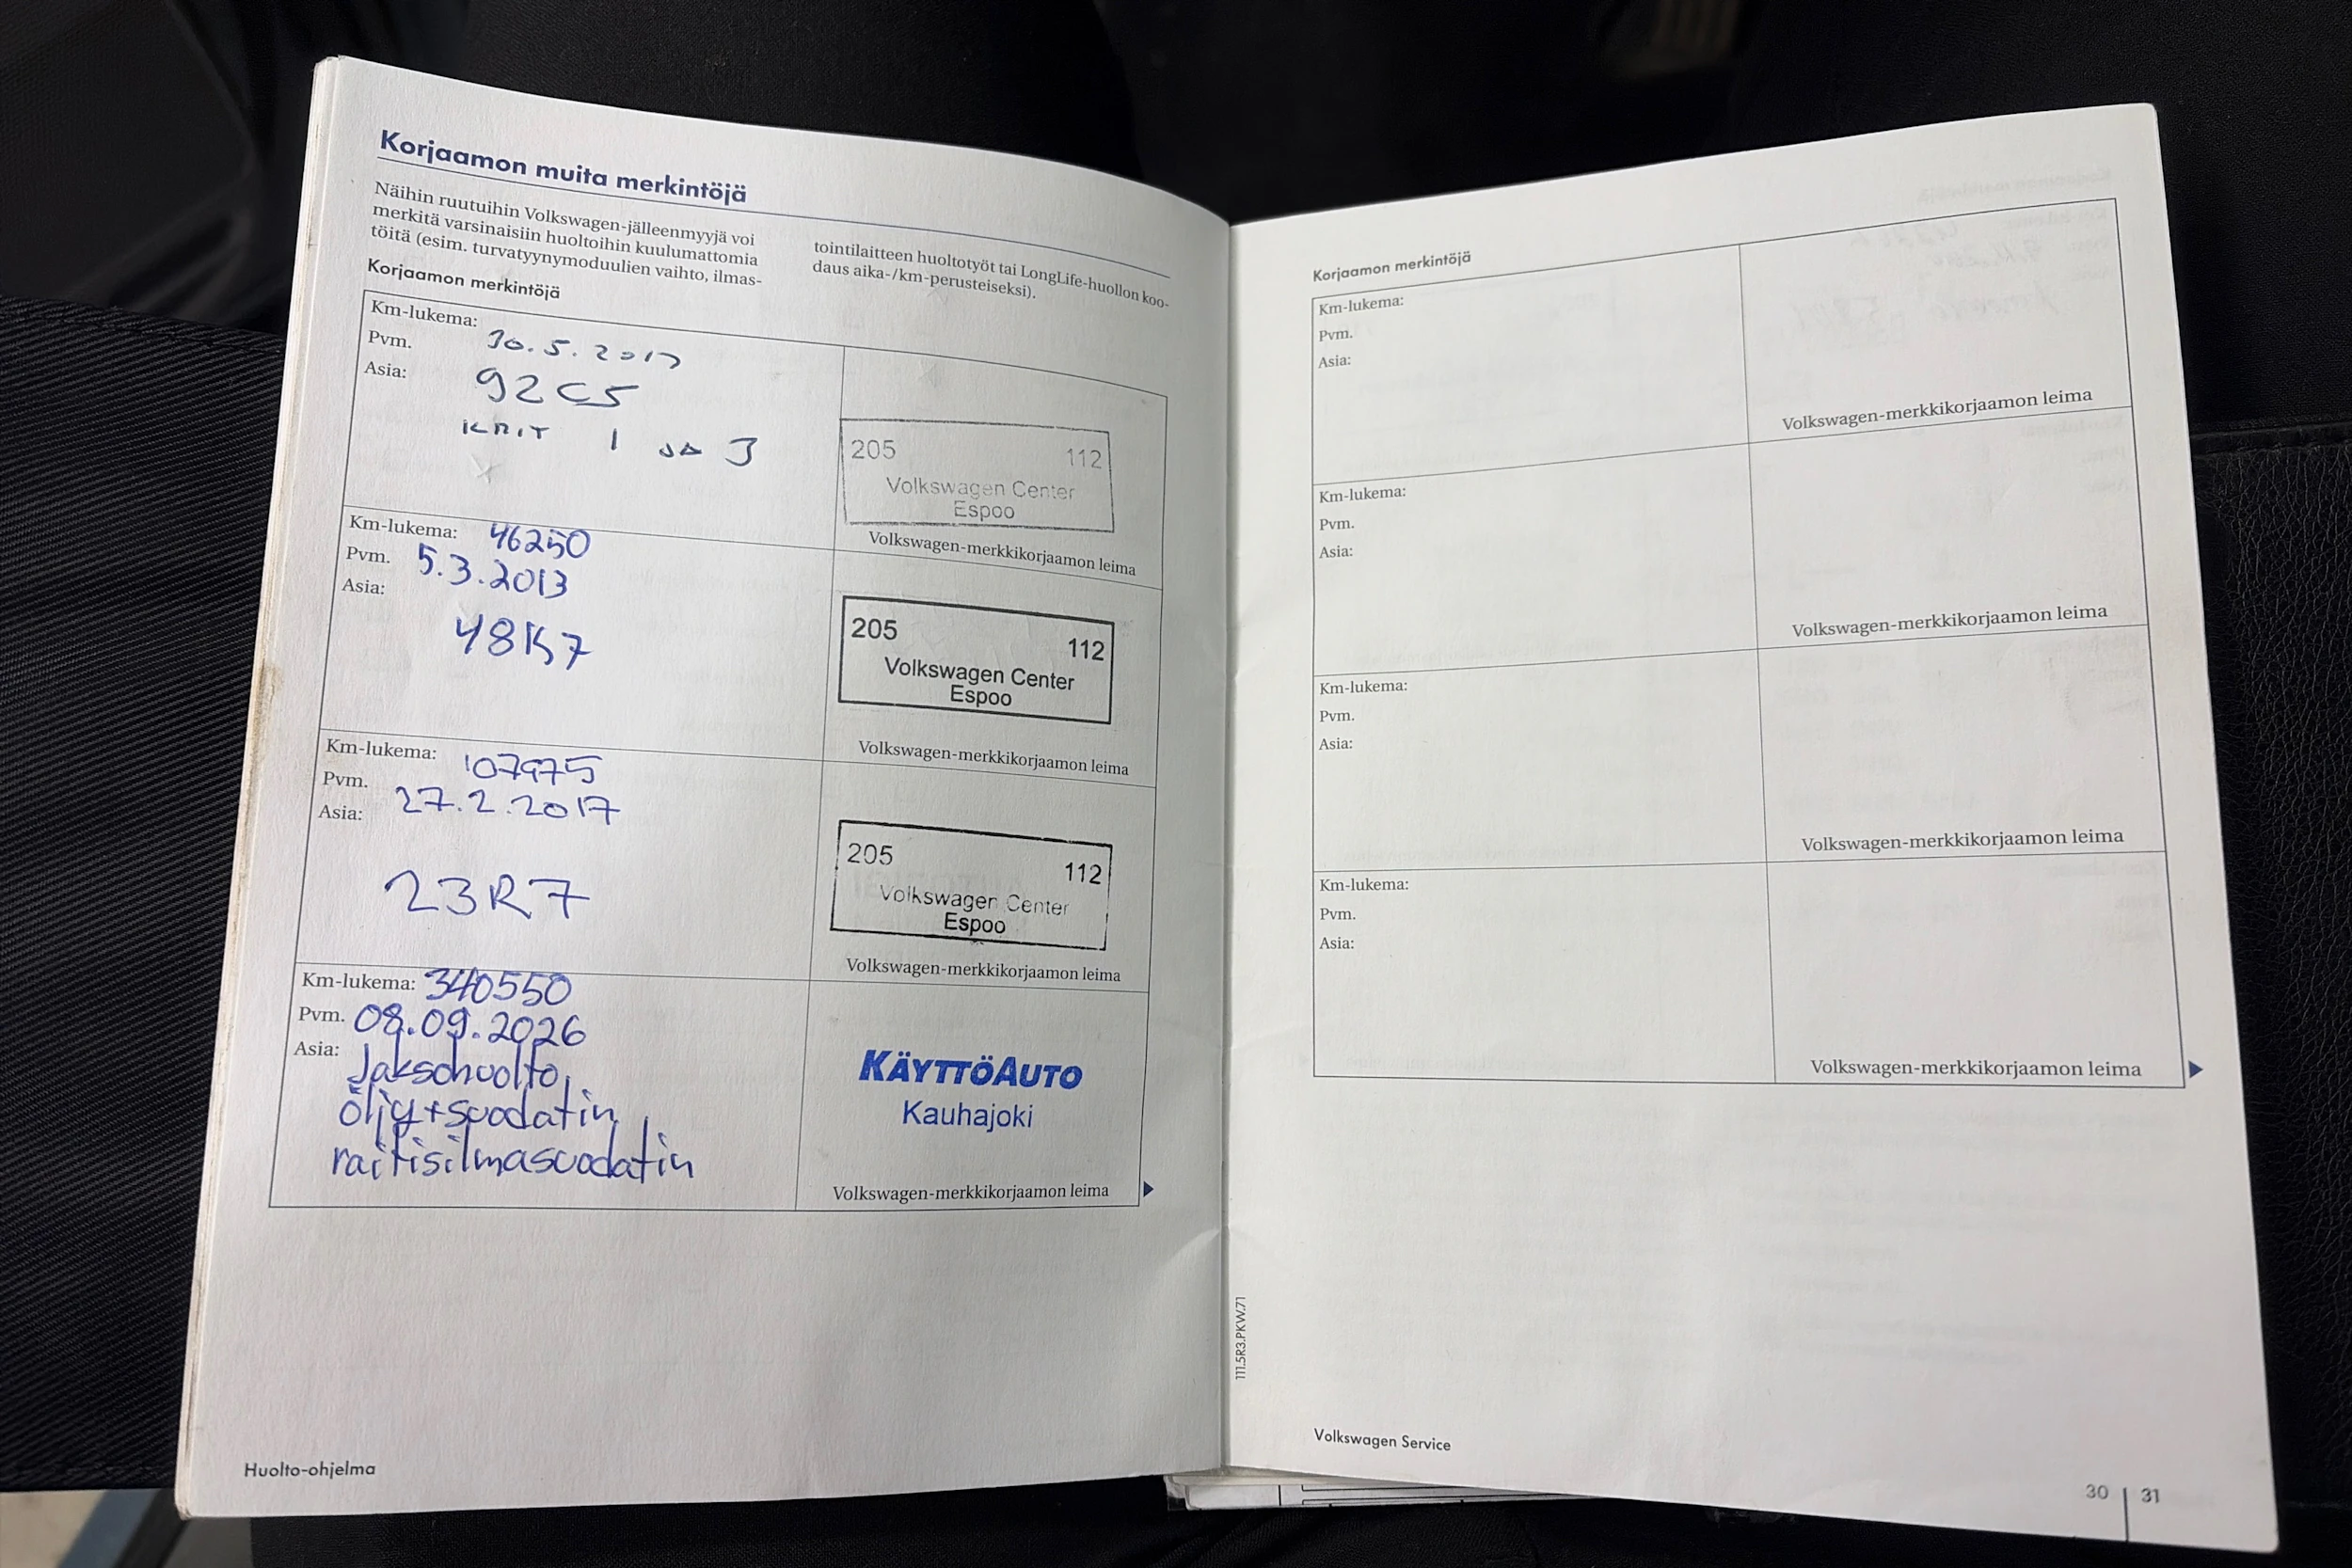 Korjaamon muita merkintöjä
Näihin ruutuihin Volkswagen-jälleenmyyjä voi
merkitä varsinaisiin huoltoihin kuulumattomia
töitä (esim. turvatyynymoduulien vaihto, ilmas-
tointilaitteen huoltotyöt tai LongLife-huollon koo-
daus aika-/km-perusteiseksi).
Korjaamon merkintöjä
Km-lukema:
Pvm. 30.5.2013
Asia: 92C5
KRIT 1 JA 3
205 112
Volkswagen Center
Espoo
Volkswagen-merkkikorjaamon leima
Km-lukema: 46250
Pvm. 5.3.2013
Asia:
48K7
205 112
Volkswagen Center
Espoo
Volkswagen-merkkikorjaamon leima
Km-lukema: 107975
Pvm. 27.2.2017
Asia:
23R7
205 112
Volkswagen Center
Espoo
Volkswagen-merkkikorjaamon leima
Km-lukema: 340550
Pvm. 08.09.2026
Asia: Jaksohuolto,
öljy+suodatin,
raitisilmasuodatin
KÄYTTÖAUTO
Kauhajoki
Volkswagen-merkkikorjaamon leima
Huolto-ohjelma
Korjaamon merkintöjä
Km-lukema:
Pvm.
Asia:
Volkswagen-merkkikorjaamon leima
Km-lukema:
Pvm.
Asia:
Volkswagen-merkkikorjaamon leima
Km-lukema:
Pvm.
Asia:
Volkswagen-merkkikorjaamon leima
Km-lukema:
Pvm.
Asia:
Volkswagen-merkkikorjaamon leima
111.5R3.PKW.71
Volkswagen Service
30 31